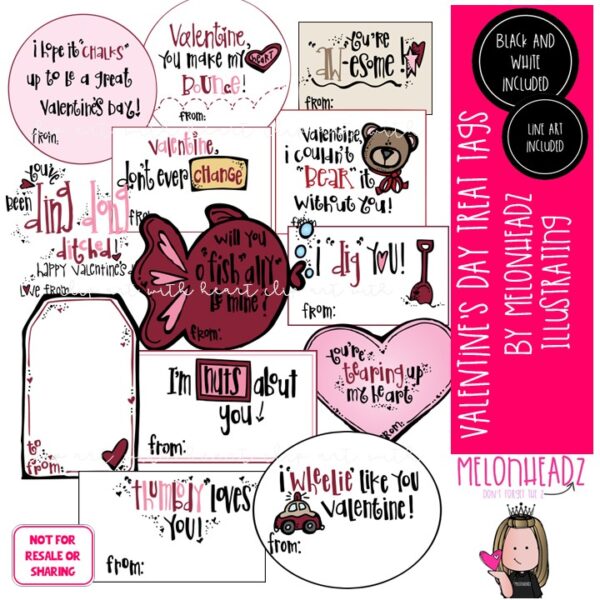 i hope it "CHALKS"
up to be a great
Valentine's Day!
from:
Valentine,
you make my HEART
BOUNCE!
from:
you're
"AW-esome!
from:
Valentine,
don't ever change
from:
Valentine,
i couldn't
"BEAR" it
without you!
from:
you've
been ding dong
ditched!
happy valentine's
Love from:
will you
"o fish" ally
be mine!
from:
i "dig" you!
from:
to:
from:
I'm nuts about
you!
from:
you're
tearing up
my heart
from:
"thumbody" loves
you!
from:
i "wheelie" like you
valentine!
from:
NOT FOR
RESALE OR
SHARING
BLACK AND
WHITE
INCLUDED
LINE ART
INCLUDED
VALENTINE'S DAY TREAT TAGS
BY MELONHEADZ
ILLUSTRATING
MELONHEADZ
DON'T FORGET THE Z
MELONHEADZ